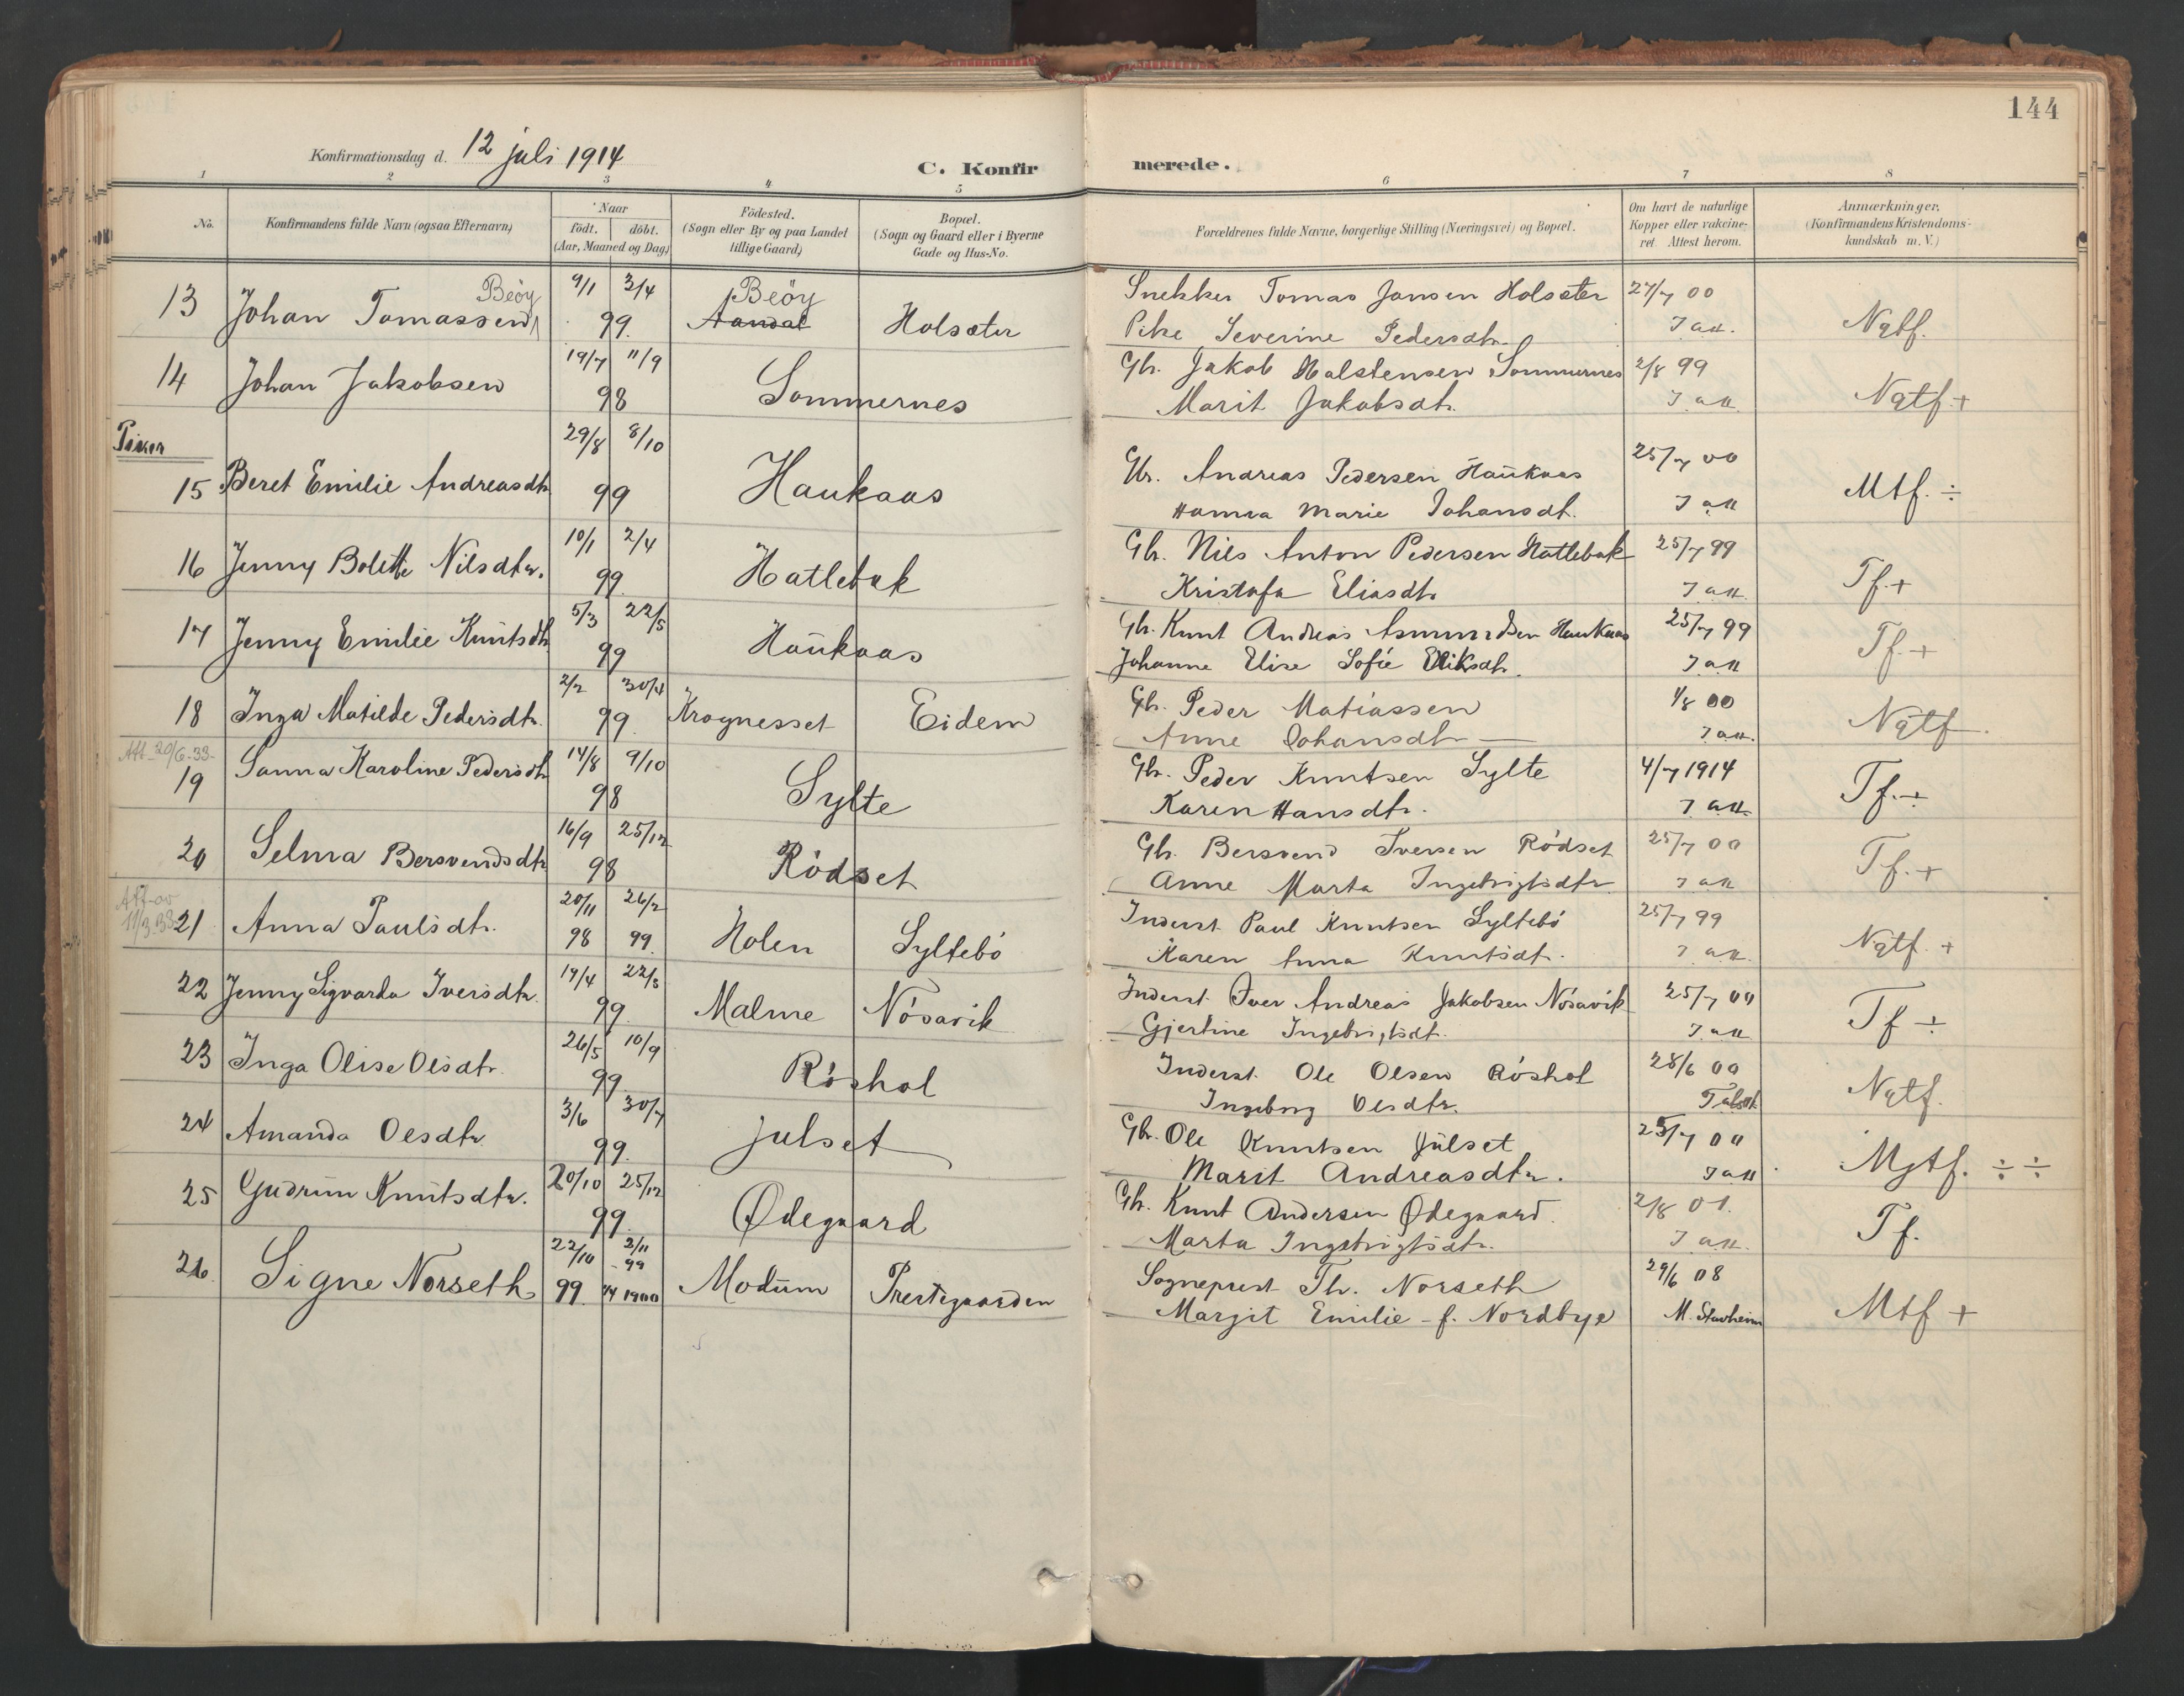 144
Konfirmationsdag d. 12 juli 1914
C. Konfirmerede.
1 2 3 4 5 6 7 8
No. Konfirmandens fulde Navn (ogsaa Efternavn) Naar födt. döbt. (Aar, Maaned og Dag) Födested. (Sogn eller By og paa Landet tillige Gaard) Bopæl. (Sogn og Gaard eller i Byerne Gade og Hus-No. Forældrenes fulde Navne, borgerlige Stilling (Næringsvei) og Bopæl. Om havt de naturlige Kopper eller vakcineret. Attest herom. Anmærkninger, (Konfirmandens Kristendomskundskab m. V.)
13 Johan Tomassen Beöy 9/1 3/4 99. Beöy Aandal Holsæter Snekker Tomas Jansen Holsæter 27/7 00
Pike Severine Pedersdtr. J all. Ngtf.
14 Johan Jakobsen 19/7 11/9 98 Sommernes Gbr. Jakob Halstensen Sommernes 2/8 99
Marit Jakobsdtr. J all. Ngtf +
Piker
15 Beret Emilie Andreasdtr 29/8 8/10 99 Haukaas Gbr. Andreas Pedersen Haukaas 25/7 00
Hanna Marie Johansdt. J all Mtf. ÷
16 Jenny Bolette Nilsdtr. 10/1 2/4 99. Hatlebak Gbr. Nils Anton Pedersen Hatlebak 25/7 99
Kristofa Eliasdtr J all. Tf. +
17 Jenny Emilie Knutsdtr 5/3 22/5 99 Haukaas Gbr. Knut Andreas Asmundsen Haukaas 25/7 99
Johanne Elise Sofie Eriksdtr. J all Tf. +
18 Inga Matilde Pedersdtr. 2/2 30/4 99. Kragnesset Eidem Gbr. Peder Matiassen 1/8 00
Anne Johansdtr — J all. Ngtf
Att. 20/6-33.
19 Sanna Karoline Pedersdtr 14/8 9/10 98 Sylte Gbr. Peder Knutsen Sylte 4/7 1914
Karen Hansdtr. J all. Tf. ÷
20 Selma Bersvendsdtr 16/9 25/12 98 Rödset Gbr. Bersvend Iversen Rödset 25/7 00
Anne Marta Ingebrigtsdtr J all Tf. +
Att. av 11/3 38
21 Anna Paulsdtr. 20/11 98 26/2 99. Holen Syltebö Inderst Paul Knutsen Syltebö 25/7 99
Karen Anna Knutsdt. J all. Ngtf. +
22 Jenny Sigvarda Iversdtr. 19/4 22/5 99. Malme Nösavik Inderst Iver Andreas Jakobsen Nösavik 25/7 00
Gjertine Ingebrigtsdt. J all Tf ÷
23 Inga Olise Olsdtr. 26/5 10/9 99. Röshol Inderst. Ole Olsen Röshol 28/6 00
Ingeborg Olsdtr. Ngtf.
24 Amanda Olsdtr. 3/6 30/7 99. Julset Gbr. Ole Knutsen Julset 25/7 00
Marit Andreasdtr. J all Mgtf. ÷ ÷
25 Gudrun Knutsdtr. 20/10 25/12 99. Ødegaard Gbr. Knut Andersen Ødegaard. 2/8 01.
Marta Ingebrigtsdtr. J all. Tf.
26 Signe Norseth 22/10 99. 2/11 -99 1900 Modum Prestegaarden Sogneprest Th. Norseth 29/6 08
Margit Emilie f. Nordbye Mtf +